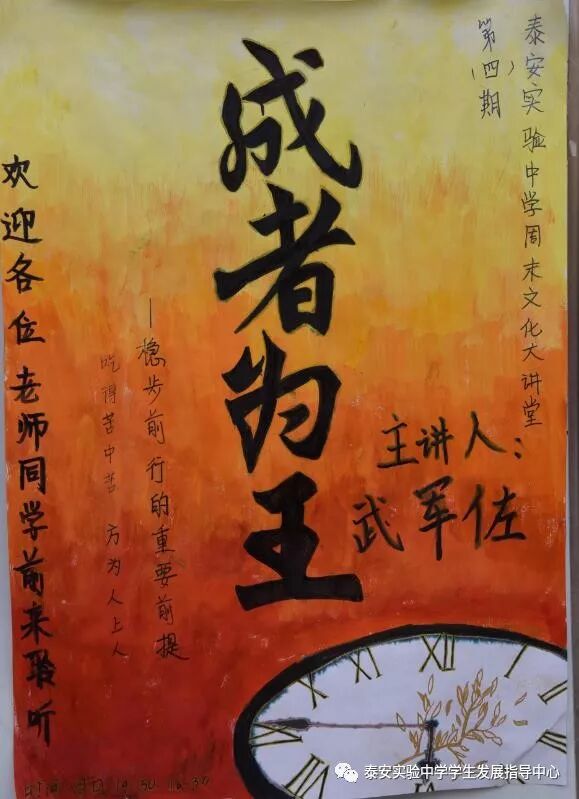 泰安实验中学周末文化大讲堂
第（四）期
成者为王
—稳步前行的重要前提
吃得苦中苦 方为人上人
主讲人：
武军佐
欢迎各位老师同学前来聆听
泰安实验中学学生发展指导中心